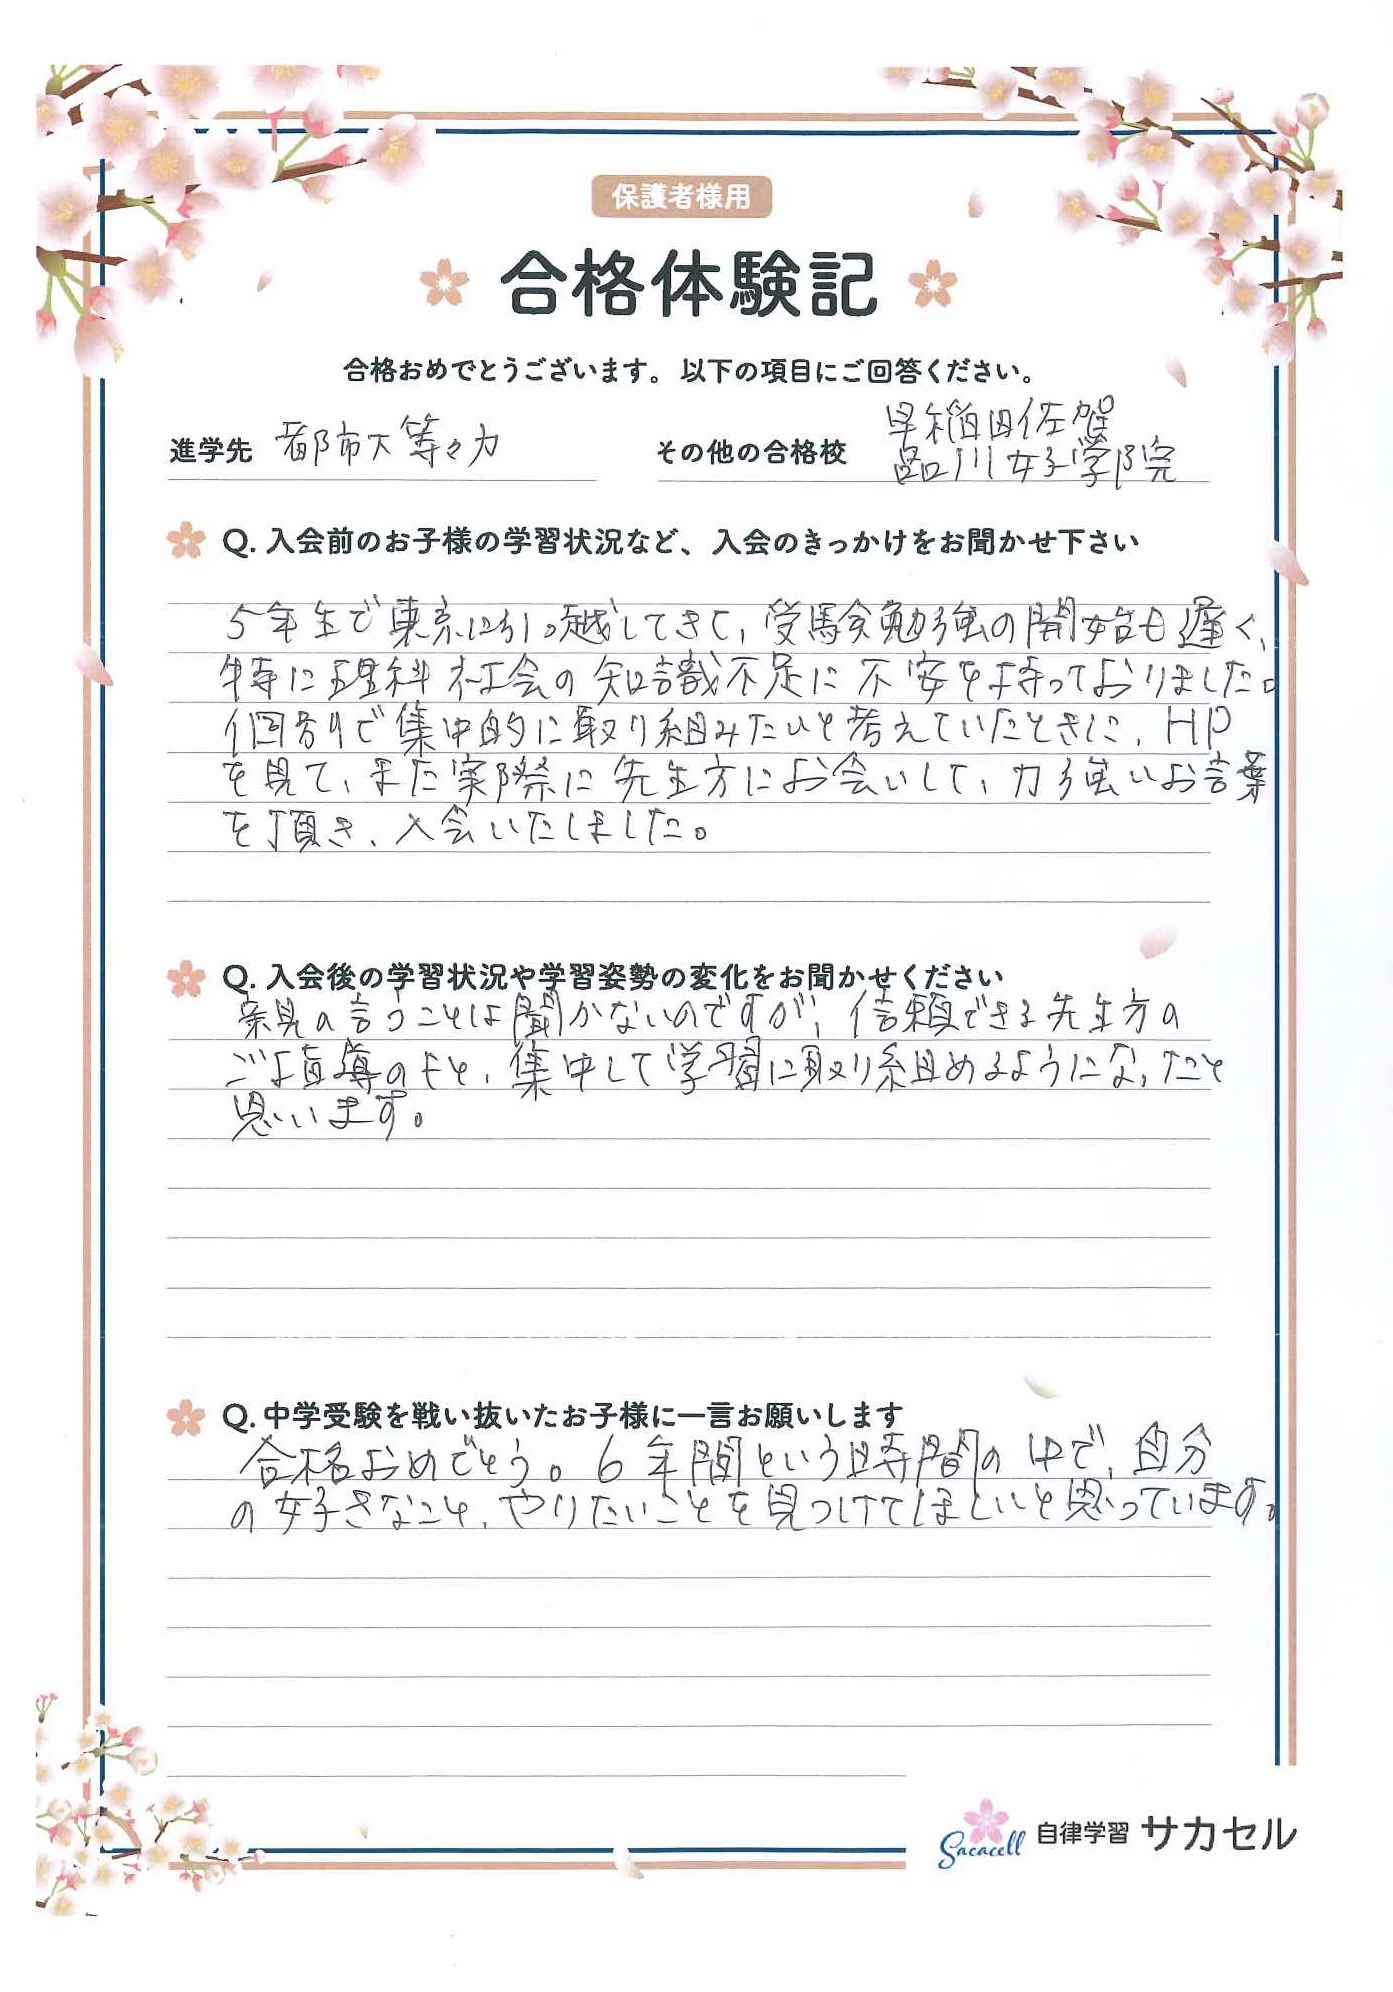 保護者様用
合格体験記
合格おめでとうございます。以下の項目にご回答ください。
進学先 都市大等々力
その他の合格校 早稲田佐賀
品川女子学院
Q. 入会前のお子様の学習状況など、入会のきっかけをお聞かせ下さい
5年生で東京に引っ越してきて、受験勉強の開始も遅く、
特に理科社会の知識不足に不安を持っておりました。
個別で集中的に取り組みたいと考えていたときに、HP
を見て、また実際に先生方にお会いして、力強いお言葉
を頂き、入会いたしました。
Q. 入会後の学習状況や学習姿勢の変化をお聞かせください
親の言うことは聞かないのですが、信頼できる先生方の
ご指導のもと、集中して学習に取り組めるようになったと
思います。
Q. 中学受験を戦い抜いたお子様に一言お願いします
合格おめでとう。6年間という時間の中で、自分
の好きなこと、やりたいことを見つけてほしいと思っています。
Sacacell 自律学習 サカセル